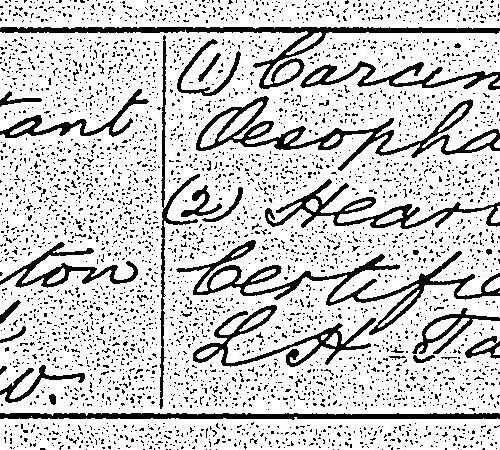 (1) Carcin
tant Oesopha
(2) Hear
ton Certifie
L H Ta
w.